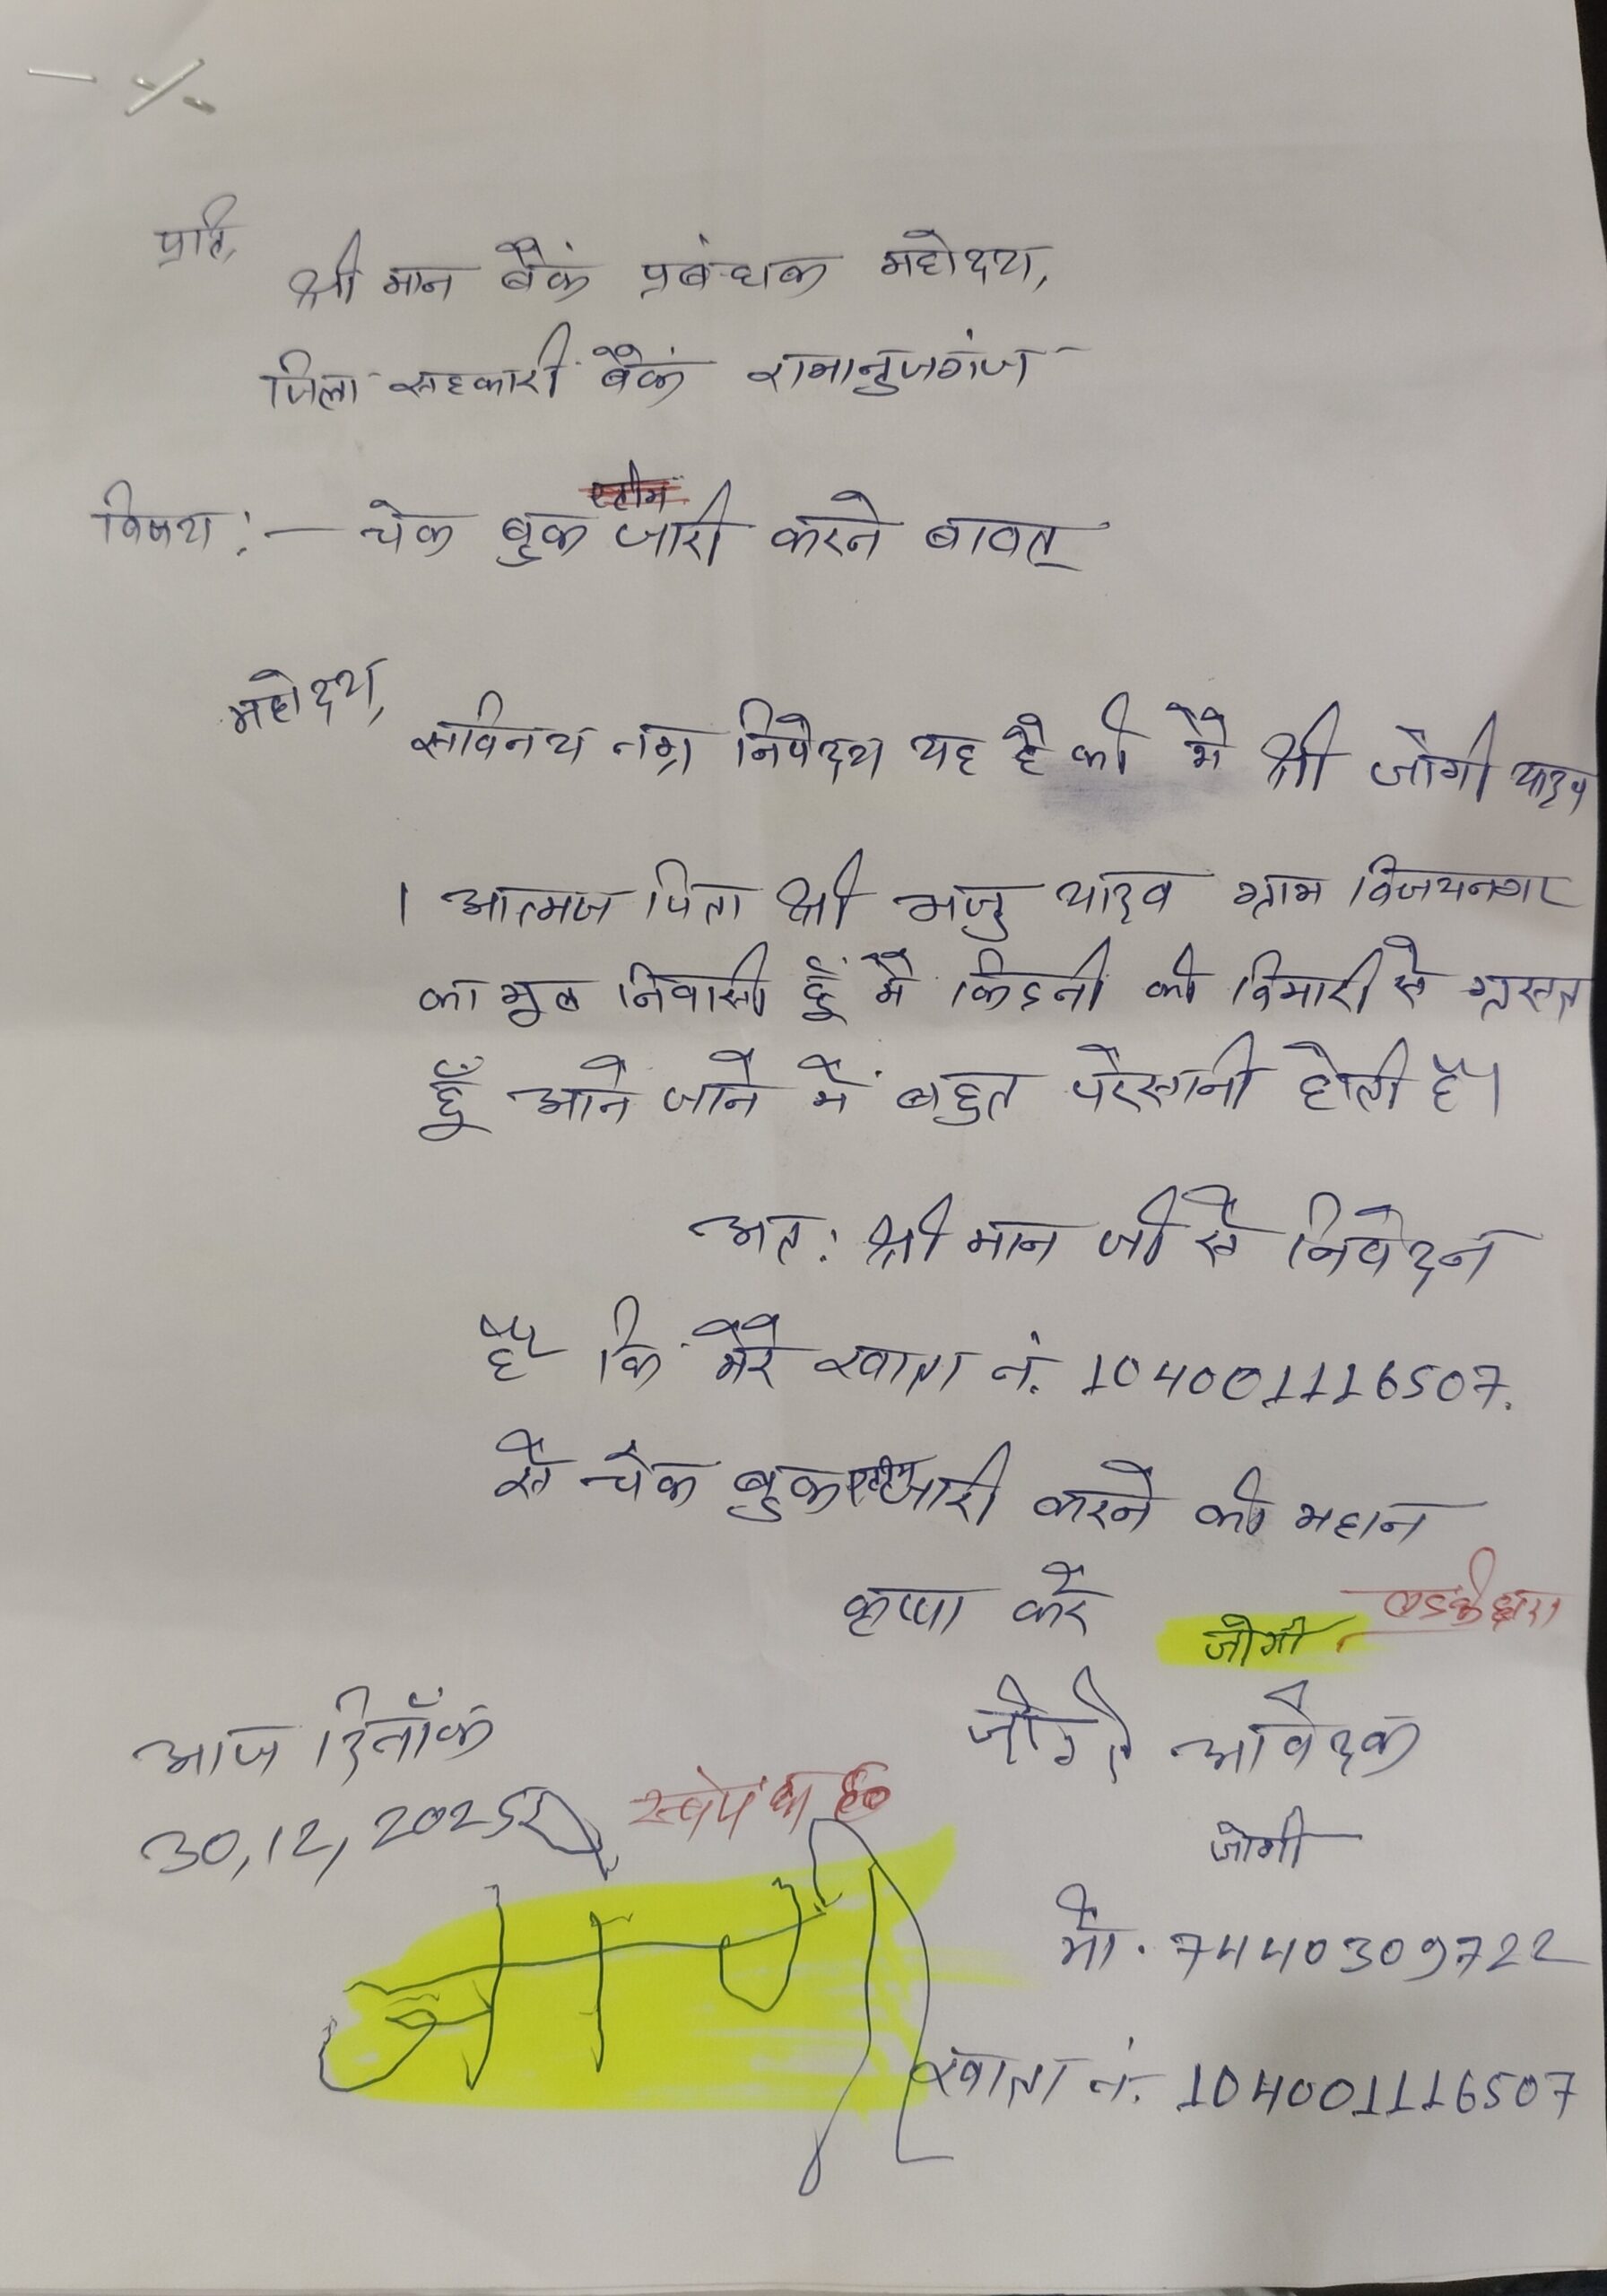 प्रति,
श्री मान बैंक प्रबंधक महोदय,
जिला सहकारी बैंक रामानुजगंज
विषय :- चेक बुक जारी करने बावत्
महोदय,
सविनय नम्र निवेदय यह है की मै श्री जोगी यादव
। आत्मज पिता श्री मजु यादव ग्राम विजयनगर
का मूल निवासी हूँ मै किडनी की बिमारी से ग्रस्त
हूँ आने जाने में बहुत परेसानी होती है।
अतः श्री मान जी से निवेदन
है कि मेरे खाता नं. 104001116507.
से चेक बुक जारी करने की महान
कृप्पा करें
जोगी लडके द्वारा
आज दिनाँक
जोगी आवेदक
30,12,2025
स्वयं का
जोगी
जोगी
मो. 7440309722
खाता नं. 104001116507